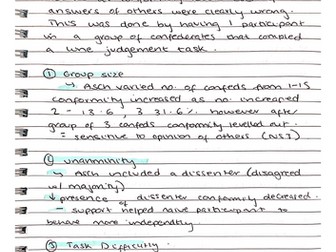 answers of others were clearly wrong.
This was done by having 1 participant
in a group of confederates that completed
a line judgement task.
① Group size
↳ Asch varied no. of confeds from 1-15
conformity increased as no. increased
2 - 13.6, 3 31.8%. however after
group of 3 confeds conformity levelled out.
= sensitive to opinion of others (NSI)
② unanimity
↳ Asch included a dissenter (disagreed
w/ majority)
↓ presence of dissenter conformity decreased.
- support helped naive participant to
behave more independently.
③ Task Difficulty